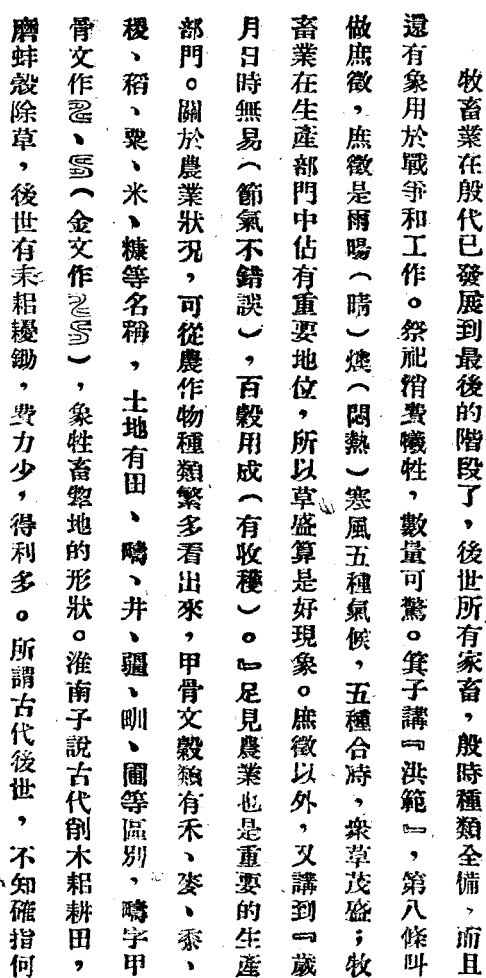 牧畜業在殷代已發展到最後的階段了，後世所有家畜，殷時種類全備，而且
還有象用於戰爭和工作。祭祀消費犧牲，數量可驚。箕子講『洪範』，第八條叫
做庶徵，庶徵是雨暘（晴）燠（悶熱）寒風五種氣候，五種合時，衆草茂盛；牧
畜業在生產部門中佔有重要地位，所以草盛算是好現象。庶徵以外，又講到『歲
月日時無易（節氣不錯誤），百穀用成（有收穫）。』足見農業也是重要的生產
部門。關於農業狀況，可從農作物種類繁多看出來，甲骨文穀類有禾、麥、黍、
稷、稻、粟、米、糠等名稱，土地有田、疇、井、疆、甽、圃等區別，疇字甲
骨文作、（金文作），象牲畜犂地的形狀。淮南子說古代剡木耜耕田，
磨蚌殼除草，後世有耒耜耰鋤，費力少，得利多。所謂古代後世，不知確指何